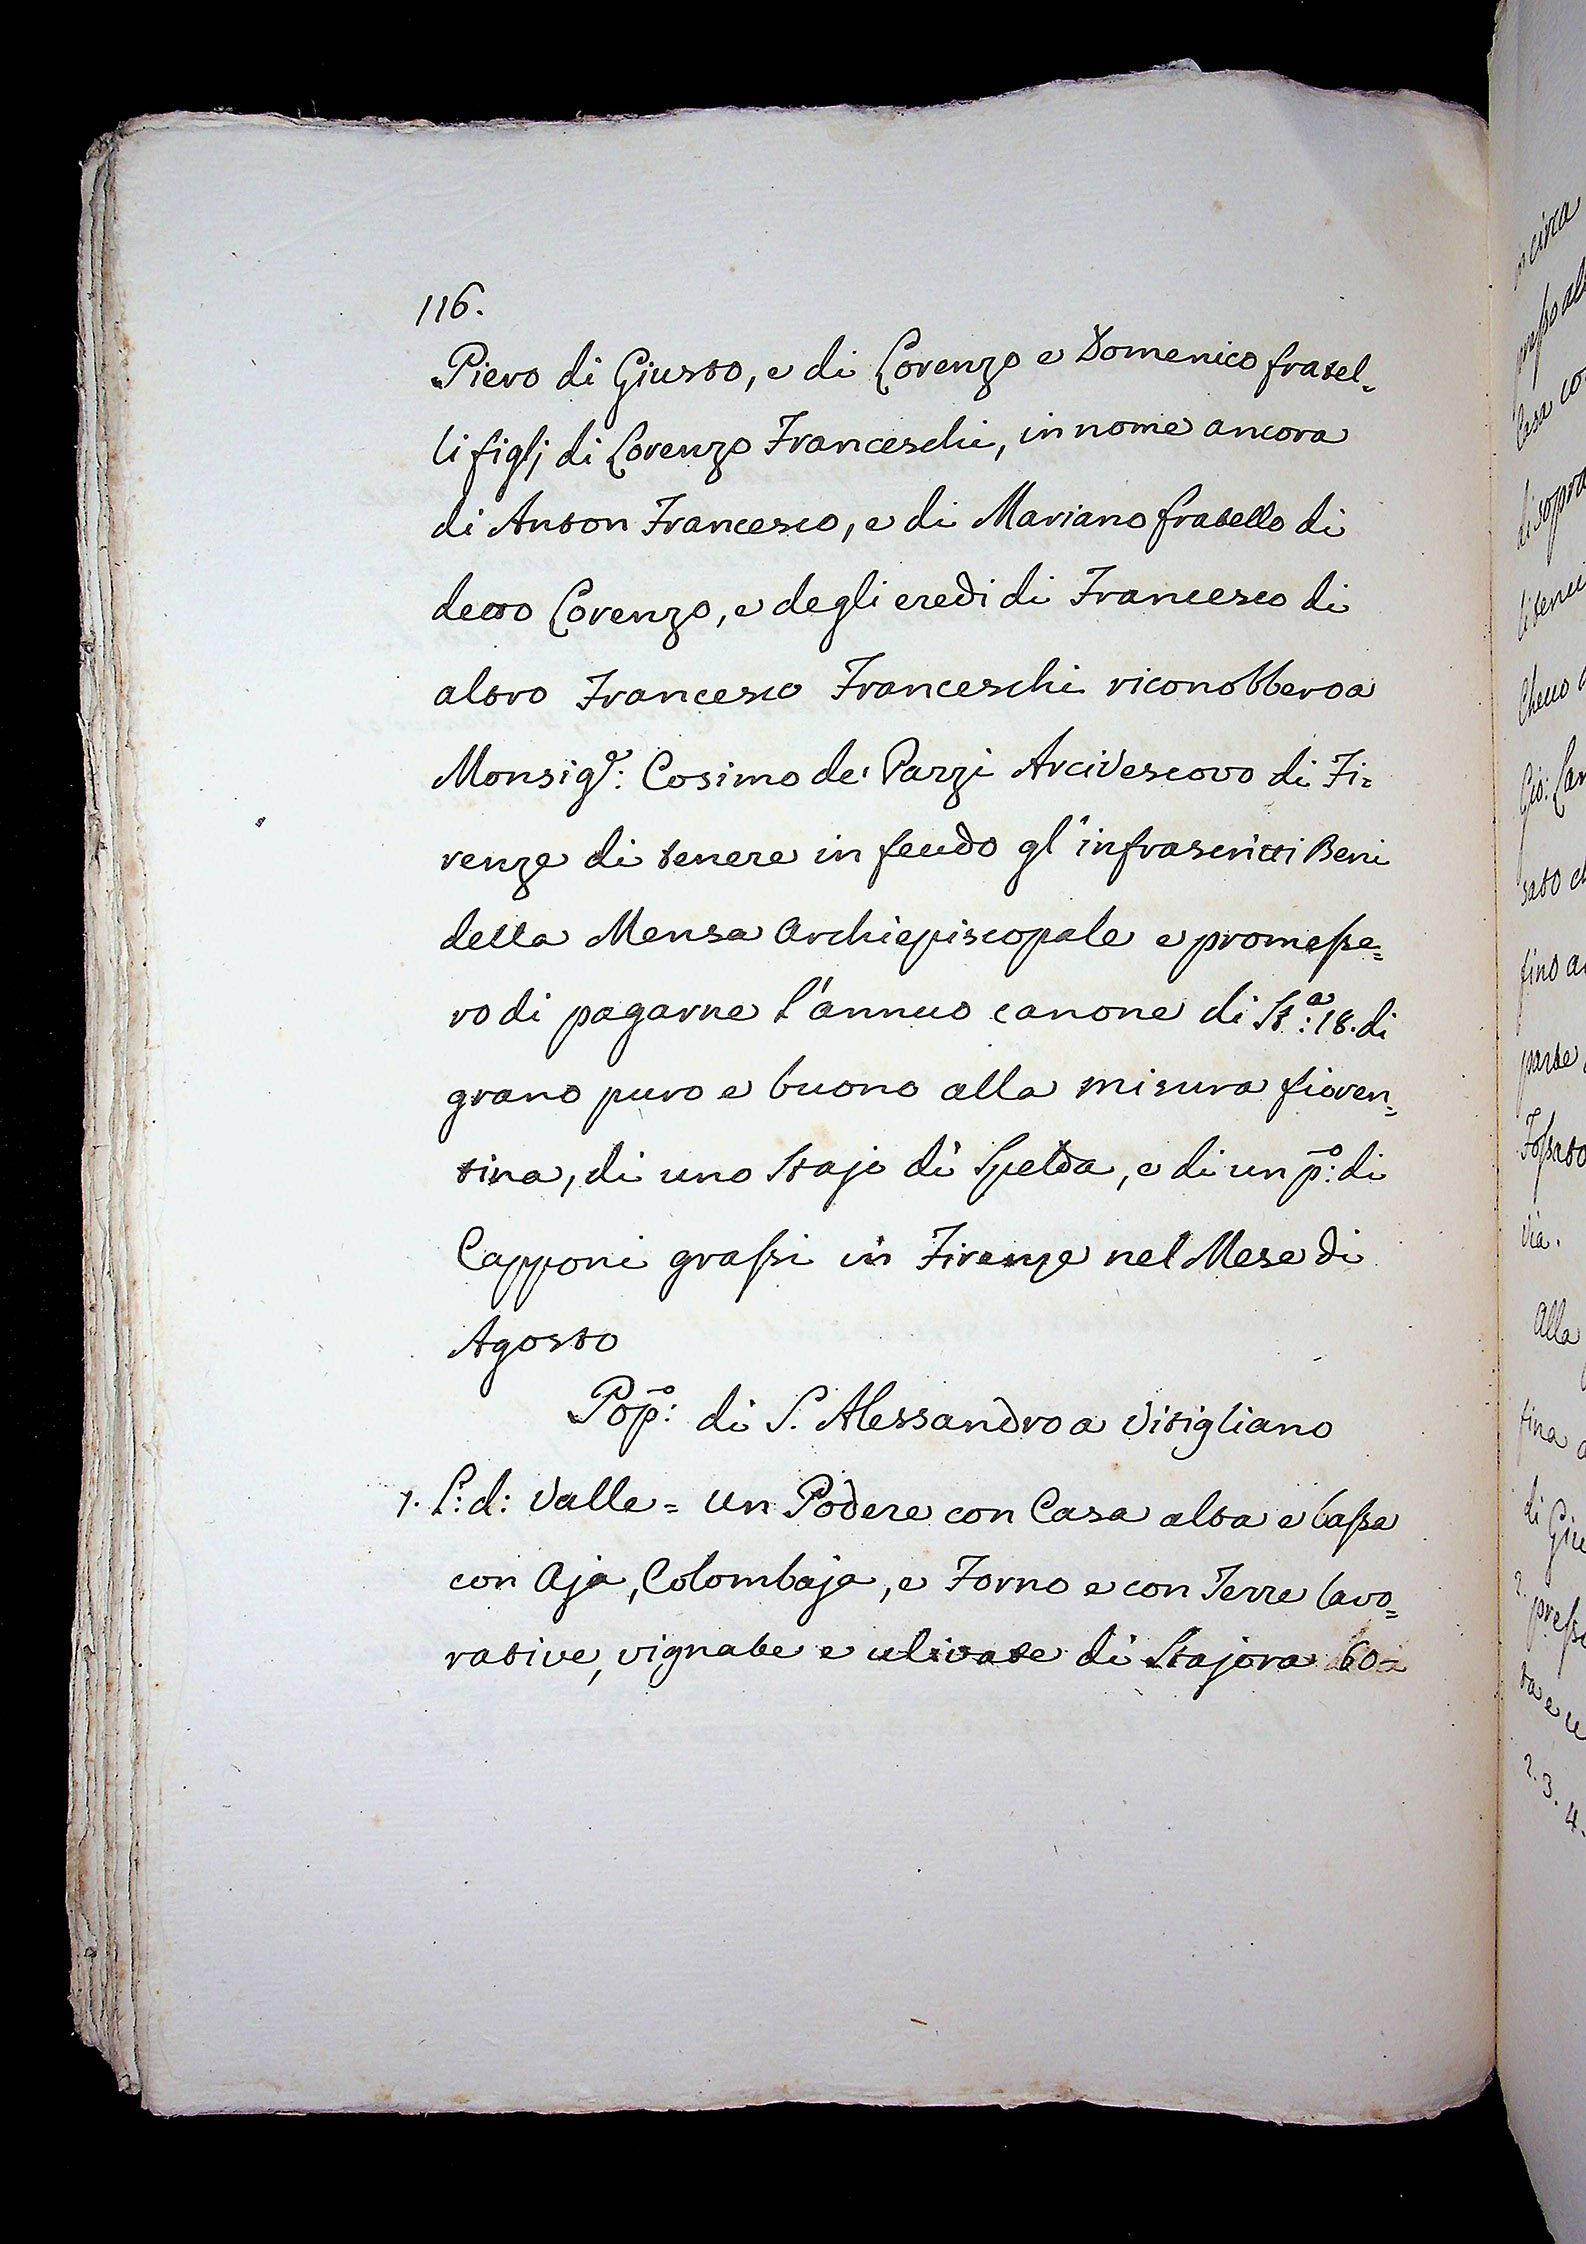 116.
Piero di Giusto, e di Lorenzo e Domenico fratel=
li figlj di Lorenzo Franceschi, in nome ancora
di Anton Francesco, e di Mariano fratello di
detto Lorenzo, e degli eredi di Francesco di
altro Francesco Franceschi riconobbero a
Monsigr: Cosimo de' Pazzi Arcivescovo di Fi=
renze di tenere in feudo gl'infrascritti Beni
della Mensa Archiepiscopale e promesse=
ro di pagarne l'annuo canone di Sta: 18. di
grano puro e buono alla misura fioren=
tina, di uno Stajo di Spelda, e di un po: di
Capponi grassi in Firenze nel Mese di
Agosto
Popo: di S. Alessandro a Vitigliano
1. L: d: Valle = un Podere con Casa alta e bassa
con Aja, Colombaja, e Forno e con Terre lavo=
rative, vignate e ulivate di Stajora 60